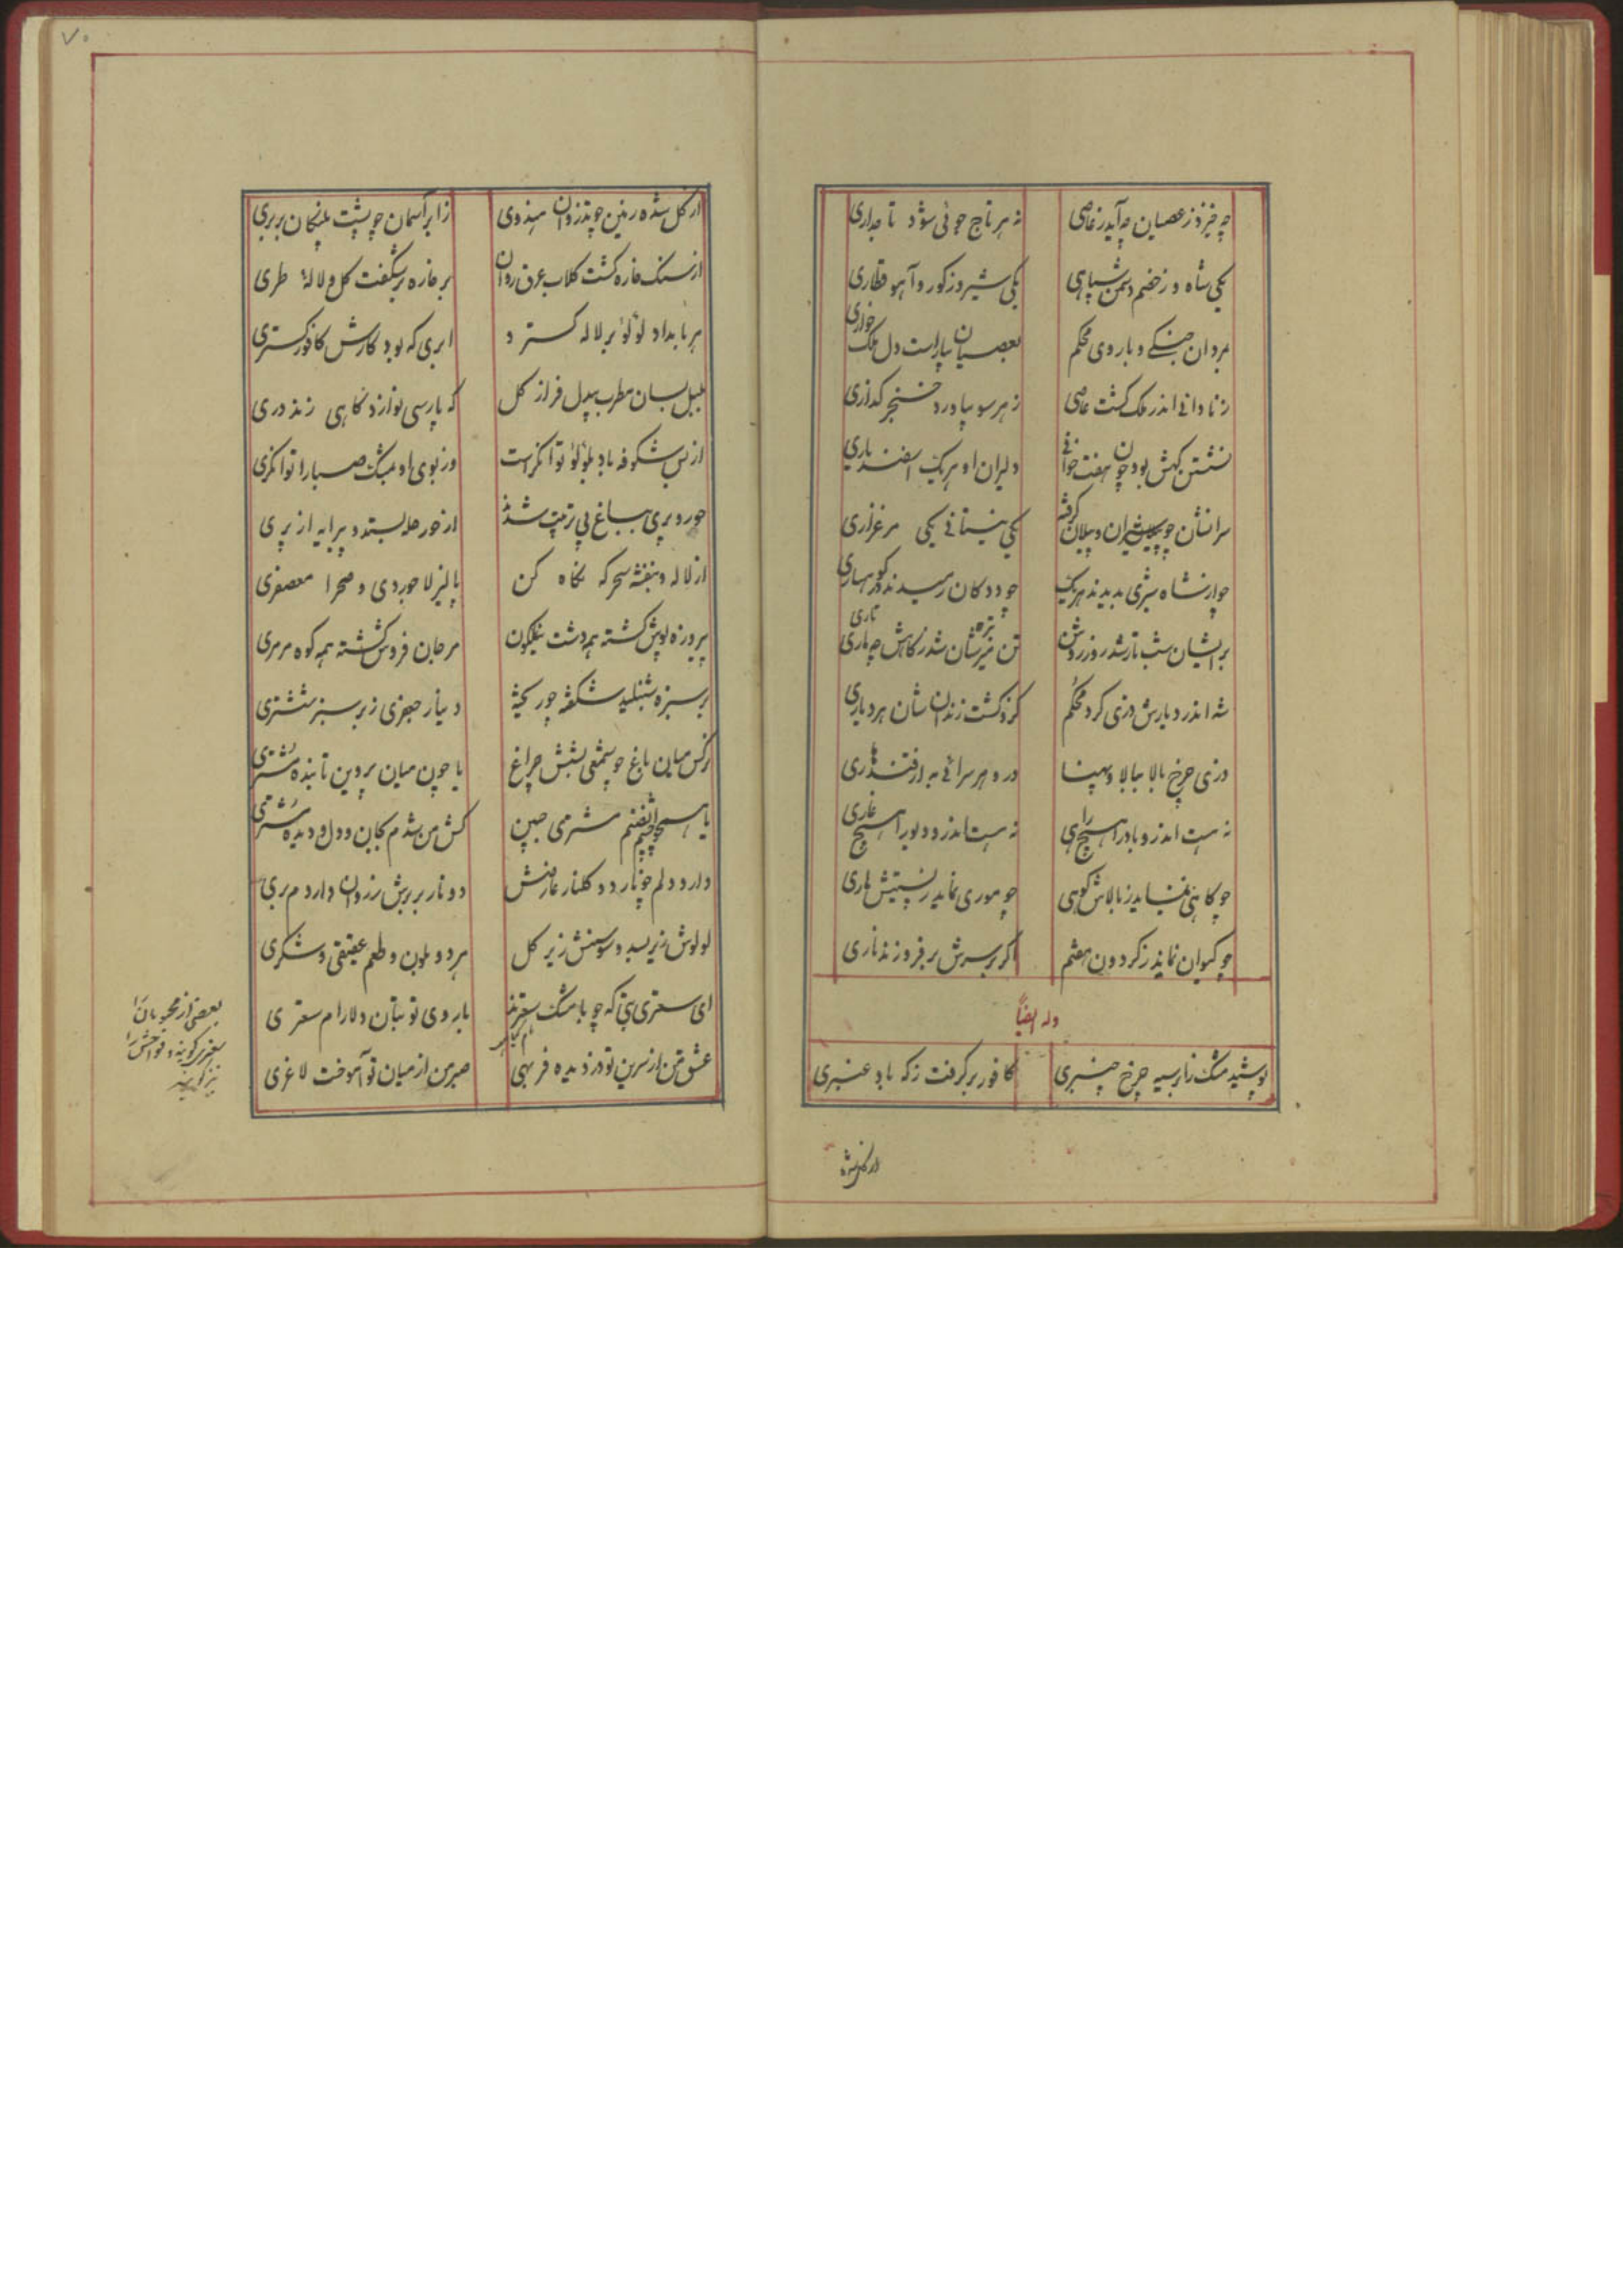 چه خیزد ز عصیان چه آید ز عاصی نه هر تاج جوئی شود تاجداری
یکی شاه و ز خصم دشمن سپاهی یکی شیر و ز کور و آهو قطاری
بمردان جنگی و باروی محکم بعصیان بیاراست دل
ز نادانی اندر ملک کشت عاصی ز هر سو بیاورد خنجر کذاری
نشستن کهش بود چون هفت خوانی دلیران او هر یک اسفندیاری
سرانشان چو شیران و پیلان گرفته یکی نیستانی یکی مرغزاری
چو از شاه شیری بدیدند هر یک چو ددکان رمیدند در کوهساری
بر ایشان شب تار شد روز روشن تن شان شد ز کاهش چو تاری
شه اندر دیارش دزی کرد محکم کزو کشت زندان شان هر دیاری
دزی چرخ بالا ببالا و پهنا در و هر سرائی به از قندهاری
نه هست اندرو باد را هیچ راهی نه هست اندرو دیو را هیچ غاری
چو کاهی نماید ز بالاش کوهی چو موری نماید ز پستیش ماری
چو کیوان نماید ز کردون هفتم اکر بر سرش بر فروزند ناری
وله ایضاً
پوشید مشک زنار سیه چرخ چنبری کافور بر کرفت ز که باد عنبری
از کل شده
۷۰
از کل شده زمین چو تذروان هندوی ز ابر آسمان چو پشت پلنکان بربری
از سنک خاره کشت کلاب عرق روان بر خاره بر شکفت کل و لالهٔ طری
هر بامداد لؤلؤ بر لاله کسترد ابری که بود کارش کافور کستری
بلبل بسان مطرب بیدل فراز کل که پارسی نوازد کاهی زند دری
از بس شکوفه باد بلؤلؤ توانکر است وز بوی او بمشک صبا را توانکری
حور و پری بباغ بی ترتیب شدند از حور حله بستد و پیرایه از پری
از لاله و بنفشه سحرکه نکاه کن پالیز لاجوردی و صحرا معصفری
پیروزه پوش کشته همه دشت نیلکون مرجان فروش کشته همه کوه مرمری
بر سبزه شنبلید شکفته چو ریخته دینار جعفری ز بر سبز ششتری
نرکس میان باغ چو شمعی بشش چراغ یا چون میان پروین تابنده مشتری
یا همچو چشم مشتری جبین کش من شدم بجان و دل و دیده مشتری
دارد دلم چو نار دو کلنار عارضش دو نار بر برش ز دو نار دارد م بری
لولوش زیر بسد و سوسنش زیر کل هر دو بلون و طعم عقیقی و شکری
ای سعتری بتی که چو با مشک سعترند با روی تو بتان دلارام سعتری
عشق من از سرین تو دزدیده فربهی صبر من از میان تو آموخت لاغری
بعضی از محبوبان را
سعتری کویند و فواحش را
نیز کویند